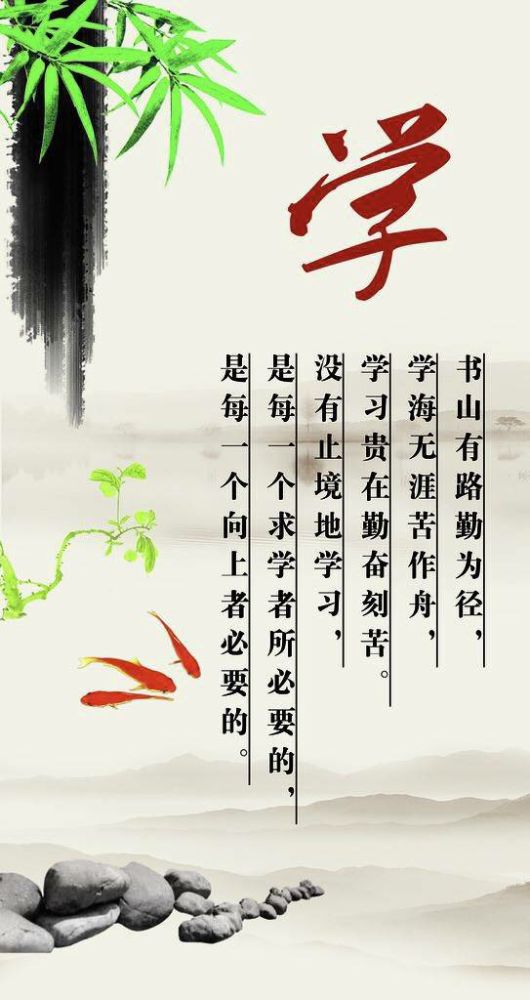 学
书山有路勤为径，
学海无涯苦作舟，
学习贵在勤奋刻苦。
没有止境地学习，
是每一个求学者所必要的，
是每一个向上者必要的。